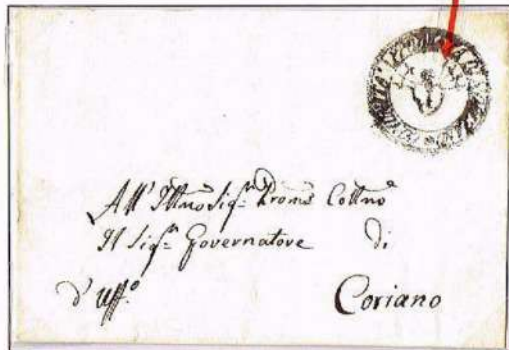 All' Illmo Sig.ʳ Prone Collmo
Il Sig.ʳ Governatore di
d'Uff.º Coriano